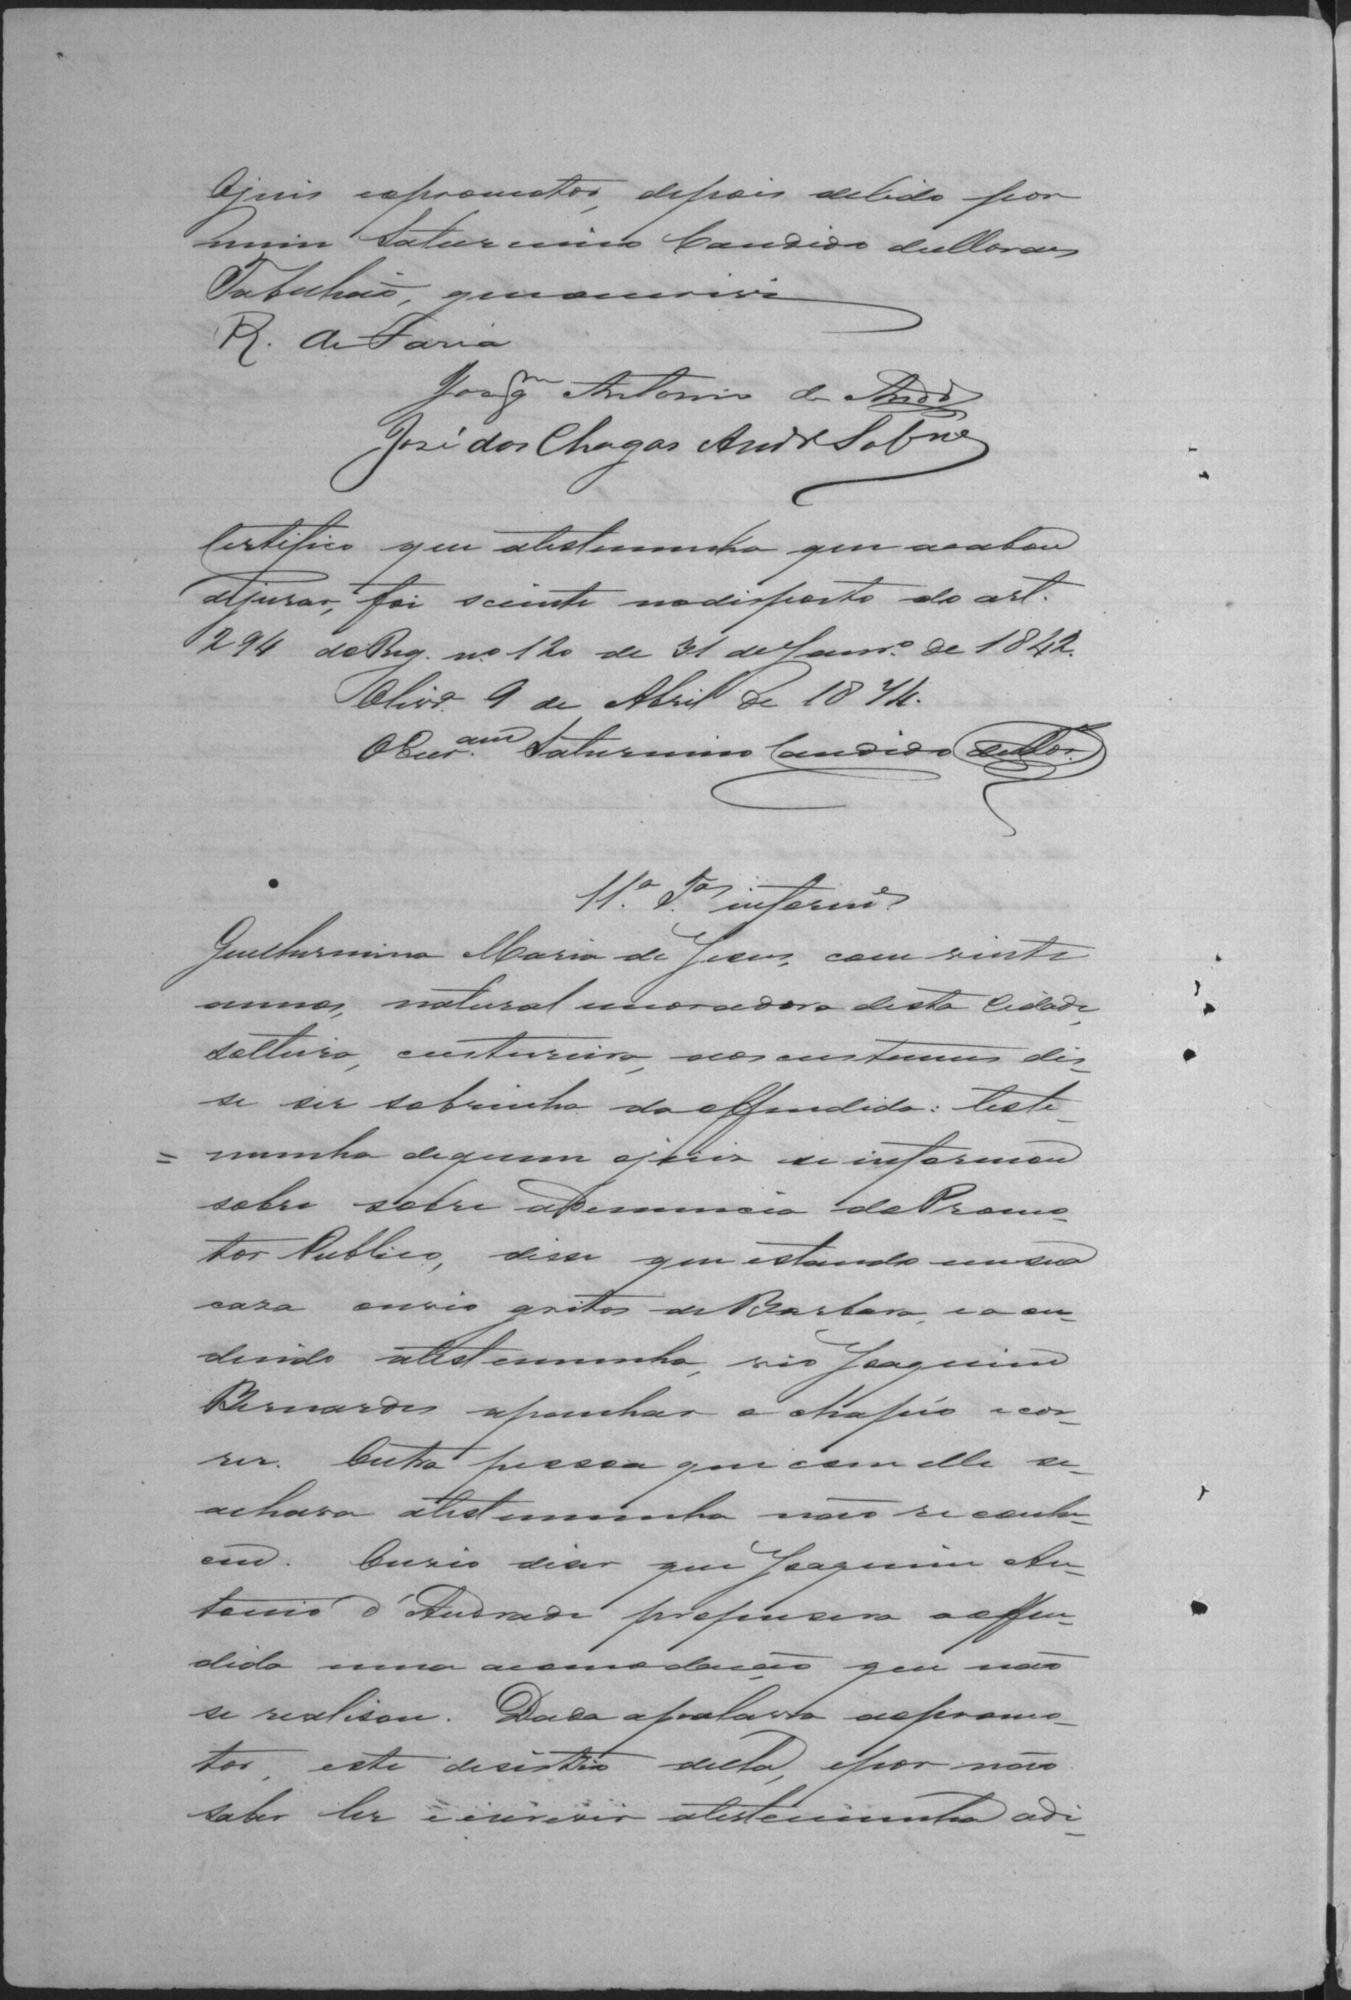 O juis eopromotor, depois delido por
mim Saturnino Candido deMoraes
Tabelião, queoescrivi
R. de Faria
Joaqm Antonio de Andr
José das Chagas Andr Sobrº
Certifico que atestemunha que acabou
dejurar, foi sciente nodisposto do art.
294 doReg. nº 120 de 31 deJanrº de 1842.
Olivrª 9 de Abril de 1874.
OEscr.am Saturnino Candido deMor.
11ª Tª informe
Guilhermina Maria de Jesus, com vinte
annos, natural emoradora desta Cidade,
solteira, custureira, aos custumes dis-
se ser sobrinha do offendido: teste-
= munha dequem ojuis se informou
sobre sobre aDenuncia doPromo-
tor Publico, disse que estando emsua
casa ouvio gritos de Barbara, e acu-
dindo atestemunha, vio Joaquim
Bernardes apanhar o chapéo e cor-
rer. Outra pessoa que com elle se-
achava atestemunha não reconhe-
ceu. Ouvio diser que Joaquim An-
tonio d'Andrade propusera aoffen-
dida uma acomodação que não
se realisou. Dada apalavra aopromo-
tor, este desistio della, epor não
saber ler e escrever atestemunha adi-